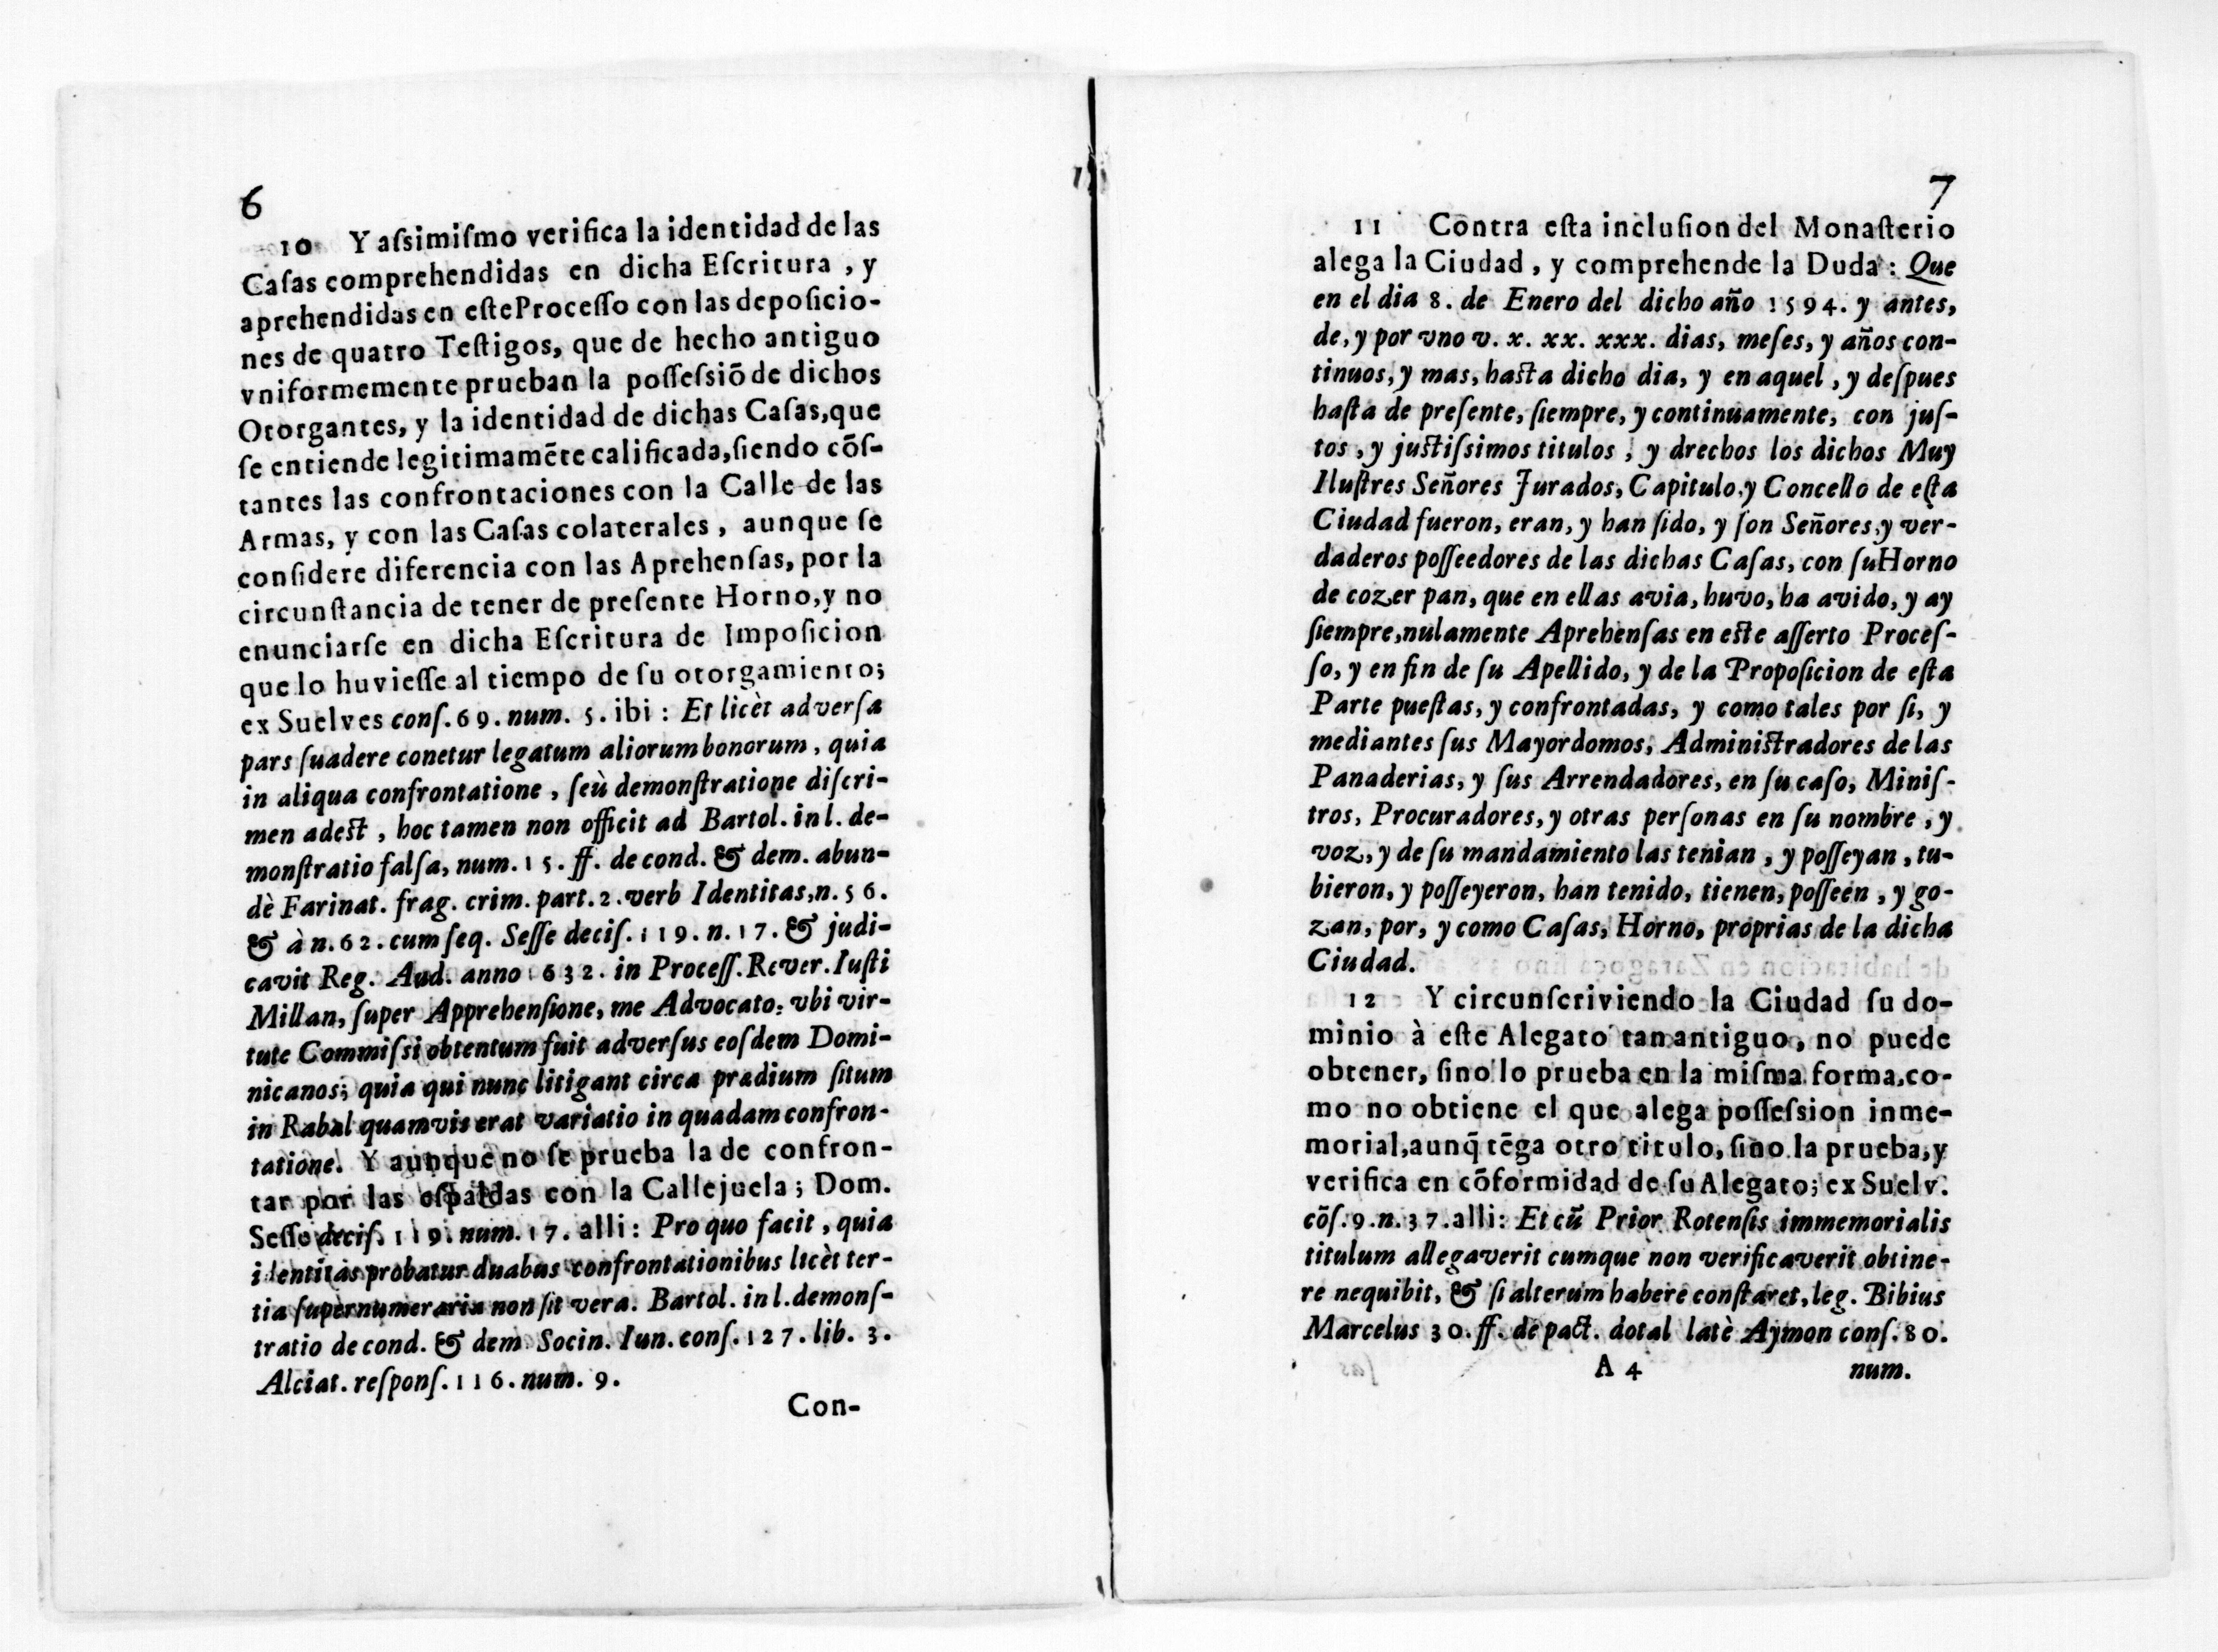 6
10 Y aſsimiſmo verifica la identidad de las
Caſas comprehendidas en dicha Eſcritura, y
aprehendidas en eſte Proceſſo con las depoſicio-
nes de quatro Teſtigos, que de hecho antiguo
vniformemente prueban la poſſeſsiō de dichos
Otorgantes, y la identidad de dichas Caſas, que
ſe entiende legitimamēte calificada, ſiendo cōſ-
tantes las confrontaciones con la Calle de las
Armas, y con las Caſas colaterales, aunque ſe
conſidere diferencia con las Aprehenſas, por la
circunſtancia de tener de preſente Horno, y no
enunciarſe en dicha Eſcritura de Impoſicion
que lo huvieſſe al tiempo de ſu otorgamiento;
ex Suelves conſ. 69. num. 5. ibi: Et licèt adverſa
pars ſuadere conetur legatum aliorum bonorum, quia
in aliqua confrontatione, ſeù demonſtratione diſcri-
men adeſt, hoc tamen non officit ad Bartol. in l. de-
monſtratio falſa, num. 15. ff. de cond. & dem. abun-
dè Farinat. frag. crim. part. 2. verb Identitas, n. 56.
& à n. 62. cum ſeq. Seſſe deciſ. 119. n. 17. & judi-
cavit Reg. Aud. anno 1632. in Proceſſ. Rever. Iuſti
Millan, ſuper Apprehenſione, me Advocato: vbi vir-
tute Commiſsi obtentum fuit adverſus eoſdem Domi-
nicanos; quia qui nunc litigant circa pradium ſitum
in Rabal quamvis erat variatio in quadam confron-
tatione. Y aunque no ſe prueba la de confron-
tar por las eſpaldas con la Callejuela; Dom.
Seſſe deciſ. 119. num. 17. alli: Pro quo facit, quia
identitas probatur duabus confrontationibus licèt ter-
tia ſupernumeraria non ſit vera. Bartol. in l. demonſ-
tratio de cond. & dem. Socin. Iun. conſ. 127. lib. 3.
Alciat. reſponſ. 116. num. 9.
Con-
7
11 Contra eſta incluſion del Monaſterio
alega la Ciudad, y comprehende la Duda: Que
en el dia 8. de Enero del dicho año 1594. y antes,
de, y por vno v. x. xx. xxx. dias, meſes, y años con-
tinuos, y mas, haſta dicho dia, y en aquel, y deſpues
haſta de preſente, ſiempre, y continuamente, con juſ-
tos, y juſtiſsimos titulos, y drechos los dichos Muy
Iluſtres Señores Jurados, Capitulo, y Concello de eſta
Ciudad fueron, eran, y han ſido, y ſon Señores, y ver-
daderos poſſeedores de las dichas Caſas, con ſu Horno
de cozer pan, que en ellas avia, huvo, ha avido, y ay
ſiempre, nulamente Aprehenſas en eſte aſſerto Proceſ-
ſo, y en fin de ſu Apellido, y de la Propoſicion de eſta
Parte pueſtas, y confrontadas, y como tales por ſi, y
mediantes ſus Mayordomos, Adminiſtradores de las
Panaderias, y ſus Arrendadores, en ſu caſo, Miniſ-
tros, Procuradores, y otras perſonas en ſu nombre, y
voz, y de ſu mandamiento las tenian, y poſſeyan, tu-
bieron, y poſſeyeron, han tenido, tienen, poſſeen, y go-
zan, por, y como Caſas, Horno, proprias de la dicha
Ciudad.
12 Y circunſcriviendo la Ciudad ſu do-
minio à eſte Alegato tan antiguo, no puede
obtener, ſino lo prueba en la miſma forma, co-
mo no obtiene el que alega poſſeſsion inme-
morial, aunq̄ tēga otro titulo, ſino la prueba, y
verifica en cōformidad de ſu Alegato; ex Suelv.
cōſ. 9. n. 37. alli: Et cū Prior Rotenſis immemorialis
titulum allegaverit cumque non verificaverit obtine-
re nequibit, & ſi alterum habere conſtaret, leg. Bibius
Marcelus 30. ff. de pact. dotal latè Aymon conſ. 80.
A 4 num.